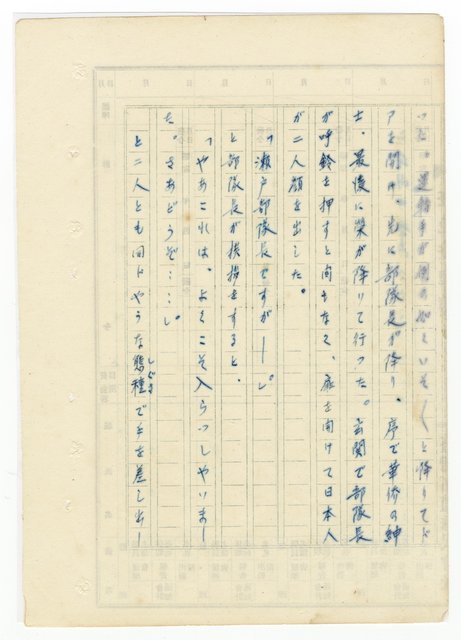 つた。運轉手が例の如くいそ〱と降りてド
アを開け、先に部隊長が降り、序で華僑の紳
士、最後に榮が降りて行つた。玄関で部隊長
が呼鈴を押すと間もなく、扉を開けて日本人
が二人顔を出した。
「瀬戸部隊長ですが――」
と部隊長が挨拶をすると、
「やあこれは、よくこそ入らつしやいまし
た。さあどうぞ……」
と二人とも同じやうな態種しぐさで手を差し出し